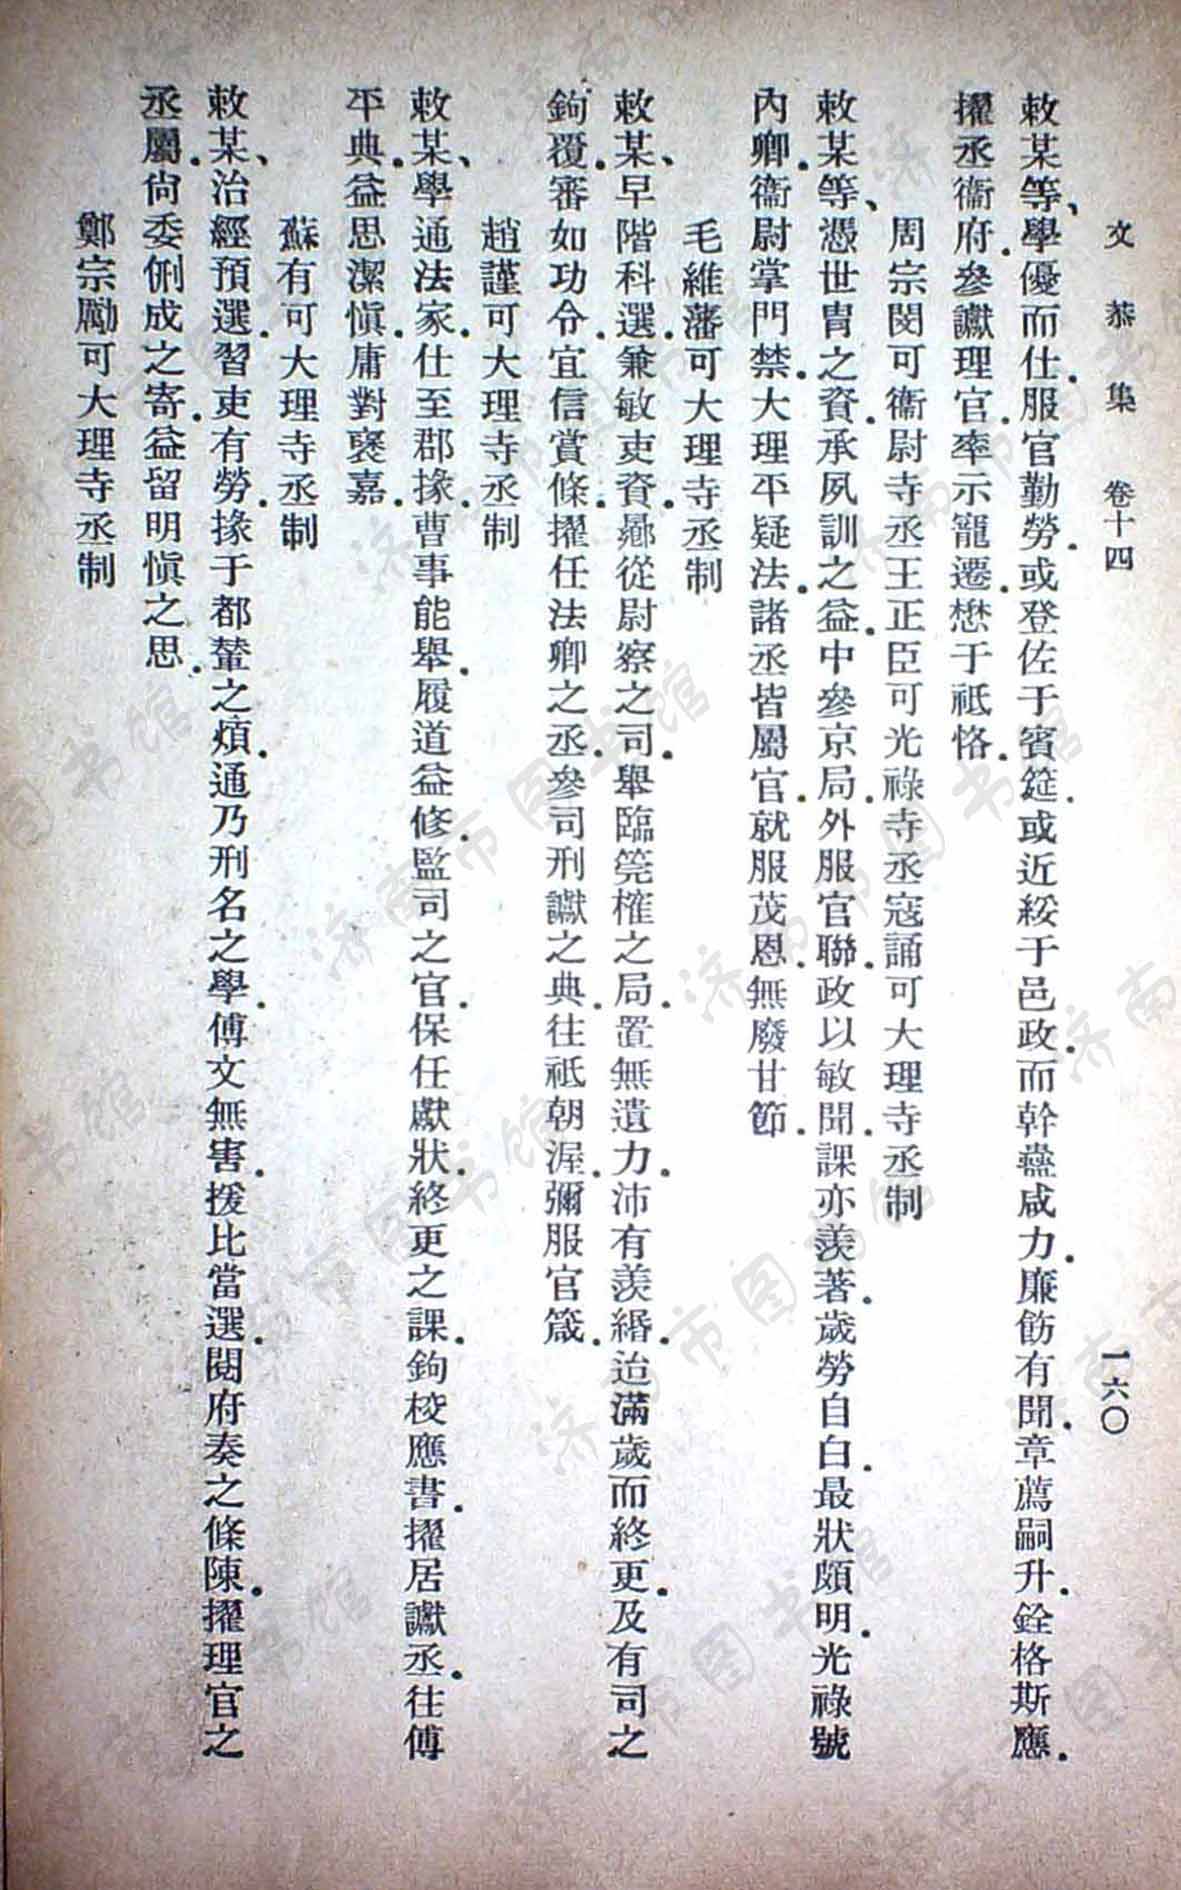 文恭集 卷十四 一六〇
敕某等、學優而仕.服官勤勞.或登佐于賓筵.或近綏于邑政.而幹蠱咸力.廉飭有聞.章薦嗣升.銓格斯應.
擢丞衞府.參讞理官.率示寵遷.懋于祗恪.
周宗閔可衞尉寺丞王正臣可光祿寺丞寇誦可大理寺丞制
敕某等、憑世胄之資.承夙訓之益.中參京局.外服官聯.政以敏聞.課亦羨著.歲勞自白.最狀頗明.光祿號
內卿.衞尉掌門禁.大理平疑法.諸丞皆屬官.就服茂恩.無廢甘節.
毛維藩可大理寺丞制
敕某、早階科選.兼敏吏資.曏從尉察之司.舉臨筦榷之局.置無遺力.沛有羨緡.迨滿歲而終更.及有司之
鉤覆.審如功令.宜信賞條.擢任法卿之丞.參司刑讞之典.往祗朝渥.彌服官箴.
趙謹可大理寺丞制
敕某、學通法家.仕至郡掾.曹事能舉.履道益修.監司之官.保任獻狀.終更之課.鉤校應書.擢居讞丞.往傅
平典.益思潔愼.庸對褒嘉.
蘇有可大理寺丞制
敕某、治經預選.習吏有勞.掾于都輦之煩.通乃刑名之學.傅文無害.援比當選.閱府奏之條陳.擢理官之
丞屬.尙委侀成之寄.益留明愼之思.
鄭宗勵可大理寺丞制